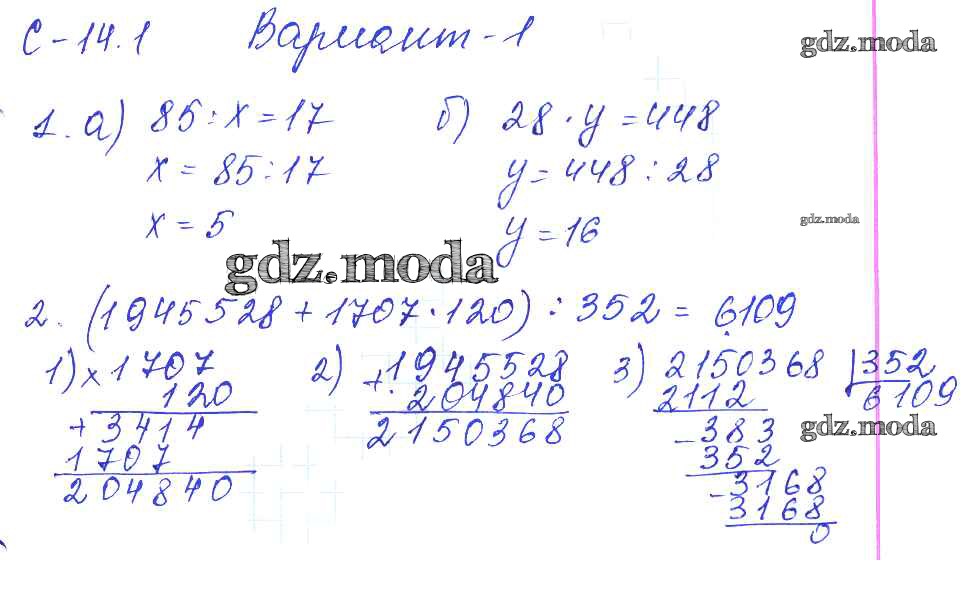 С-14.1 Вариант-1
gdz.moda
1. а) 85 : х = 17 б) 28 · у = 448
х = 85 : 17 у = 448 : 28
х = 5 у = 16
gdz.moda
gdz.moda
2. (1945528 + 1707 · 120) : 352 = 6109
1) × 1707 2) + 1945528 3) 2150368 | 352
120 204840 2112 6109
+ 3414 2150368 - 383
1707 352
204840 - 3168
3168
0
gdz.moda